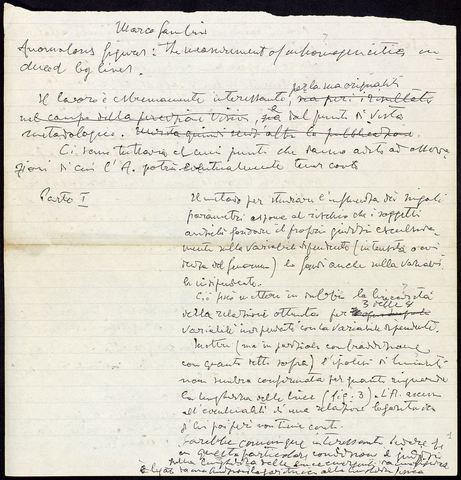 Marco Sambin
Anomalous figures: The measurement of inhomogeneities in-
duced by lines.
Il lavoro è estremamente interessante, per la sua originalità sia per i risultati
nel campo della percezione visiva, sia dal punto di vista
metodologico. Merita quindi senz'altro la pubblicazione
Ci sono tuttavia alcuni punti che danno adito ad osserva-
zioni di cui l'A. potrà eventualmente tener conto
Parte I
Il metodo per studiare l'influenza dei singoli
parametri espone al rischio che i soggetti
anziché fondare il proprio giudizio esclusiva-
mente sulla variabile dipendente (intensità o evi
denza del fenomeno) lo fondi anche sulla variabi
le indipendente.
Ciò può mettere in dubbio la linearità
della relazione ottenuta per 3 delle 4
variabili indipendenti con la variabile dipendente.
Inoltre (ma in parziale contraddizione
con quanto detto sopra) l'ipotesi di linearità
non sembra confermata per quanto riguarda
la lunghezza delle linee (fig. 3). L'A. accenna
all'eventualità di una relazione logaritmica
di cui poi però non tiene conto.
Sarebbe comunque interessante vedere se
in queste particolari condizioni il giudizio
sulla lunghezza delle linee
è legato da una